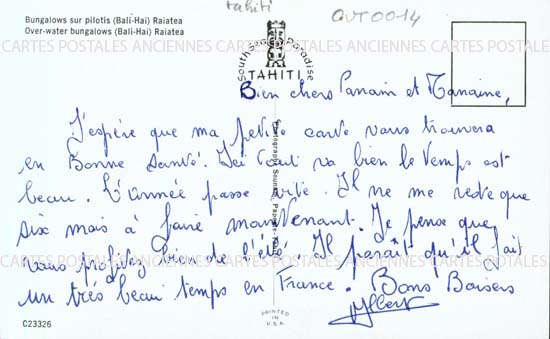 Bungalows sur pilotis (Bali-Hai) Raiatea
Over-water bungalows (Bali-Hai) Raiatea
tahiti
QVT0014
South Sea Paradise
TAHITI
CARTES POSTALES ANCIENNES CARTES POSTALES ANCIENNES CARTES POSTALES
Bien chers Parrain et Marraine,
J'espère que ma petite carte vous trouvera
en Bonne Santé. Ici tout va bien le temps est
beau. L'année passe vite. Il ne me reste que
six mois à faire maintenant. Je pense que
vous profitez bien de l'été. Il paraît qu'il fait
CARTES POSTALES ANCIENNES CARTES POSTALES ANCIENNES CARTES POSTALES
un très beau temps en France. Bons Baisers
Albert
C23326
PRINTED IN U.S.A.